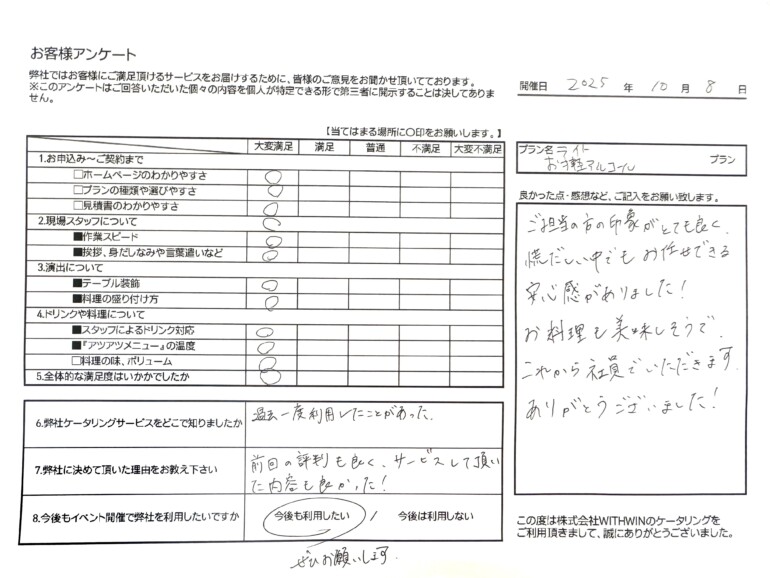 お客様アンケート
弊社ではお客様にご満足頂けるサービスをお届けするために、皆様のご意見をお聞かせ頂いてております。
※このアンケートはご回答いただいた個々の内容を個人が特定できる形で第三者に開示することは決してありま
せん。
開催日 2025 年 10 月 8 日
【当てはまる場所に○印をお願いします。】
大変満足 満足 普通 不満足 大変不満足
1.お申込み～ご契約まで
□ホームページのわかりやすさ
□プランの種類や選びやすさ
□見積書のわかりやすさ
2.現場スタッフについて
■作業スピード
■挨拶、身だしなみや言葉遣いなど
3.演出について
■テーブル装飾
■料理の盛り付け方
4.ドリンクや料理について
■スタッフによるドリンク対応
■『アツアツメニュー』の温度
□料理の味、ボリューム
5.全体的な満足度はいかがでしたか
6.弊社ケータリングサービスをどこで知りましたか
過去一度利用したことがあった。
7.弊社に決めて頂いた理由をお教え下さい
前回の評判も良く、サービスして頂い
た内容も良かった!
8.今後もイベント開催で弊社を利用したいですか
今後も利用したい / 今後は利用しない
ぜひお願いします。
プラン名 ライト
お手軽アルコール プラン
良かった点・感想など、ご記入をお願い致します。
ご担当の方の印象がとても良く、
慌だしい中でもお任せできる
安心感がありました!
お料理も美味しそうで、
これから社員でいただきます。
ありがとうございました!
この度は株式会社WITHWINのケータリングを
ご利用頂きまして、誠にありがとうございました。